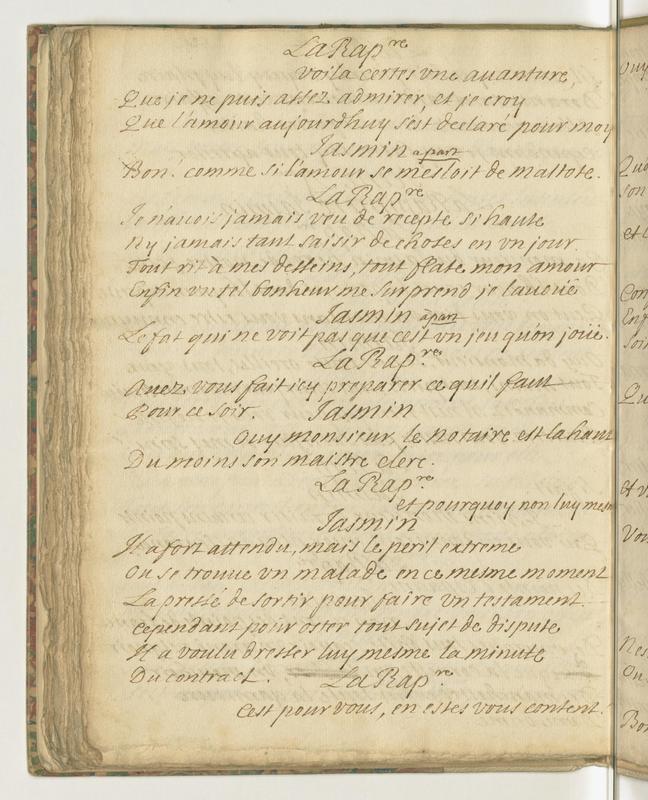 La Rap^re
voila certes vne auanture
Que je ne puis assez admirer, et je croy
Que l'amour aujourdhuy s'est declaré pour moy
Jasmin apart
Bon! comme si l'amour se mesloit de maltote.
La Rap^re
Je n'auois jamais veu de recepte si haute
Ny jamais tant saisir de choses en vn jour.
Tout rit à mes desseins, tout flate mon amour
Enfin vn tel bonheur me surprend je l'auoüe
Jasmin apart
Le fat qui ne voit pas que c'est vn jeu qu'on joüe.
La Rap.^re
Auez vous fait icy preparer ce quil faut
Pour ce soir. Jasmin
Ouy monsieur, le notaire est la haut
Du moins son maistre clerc.
La Rap.^re
et pourquoy non luy mesm
Jasmin
Il a fort attendu, mais le peril extreme
Ou se trouue vn malade en ce mesme moment
La pressé de sortir pour faire vn testament.
cependant pour oster tout sujet de dispute
Il a voulu dresser luy mesme la minute
Du contract. La Rap.^re
C'est pour vous, en estes vous content?